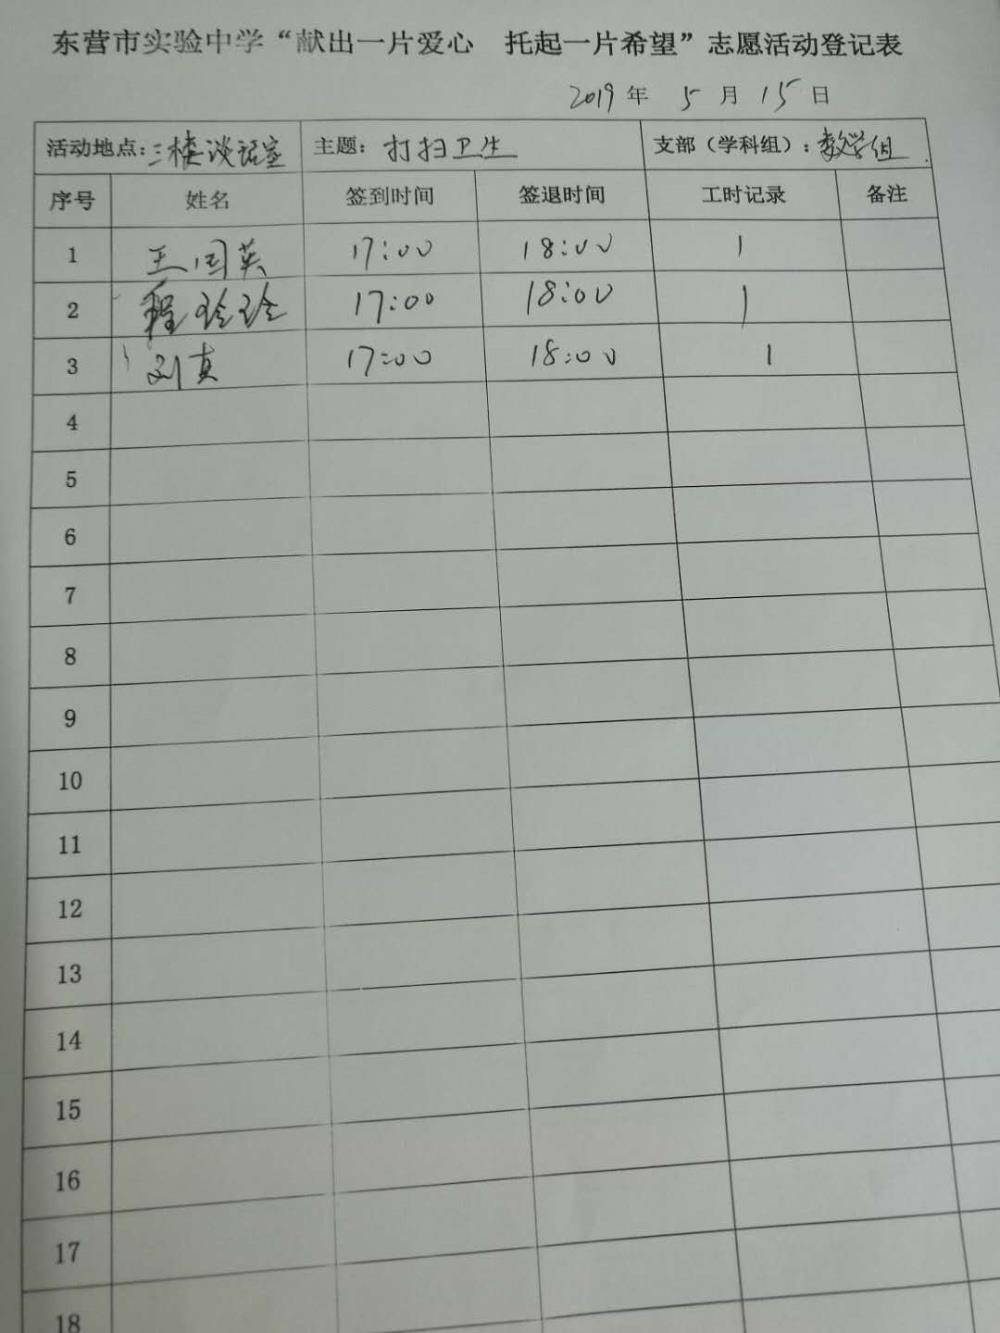 东营市实验中学“献出一片爱心 托起一片希望”志愿活动登记表
2019年 5月15日
活动地点:三楼谈话室 主题:打扫卫生 支部(学科组):数学组
序号 姓名 签到时间 签退时间 工时记录 备注
1 王国英 17:00 18:00 1
2 程玲玲 17:00 18:00 1
3 刘真 17:00 18:00 1
4
5
6
7
8
9
10
11
12
13
14
15
16
17
18